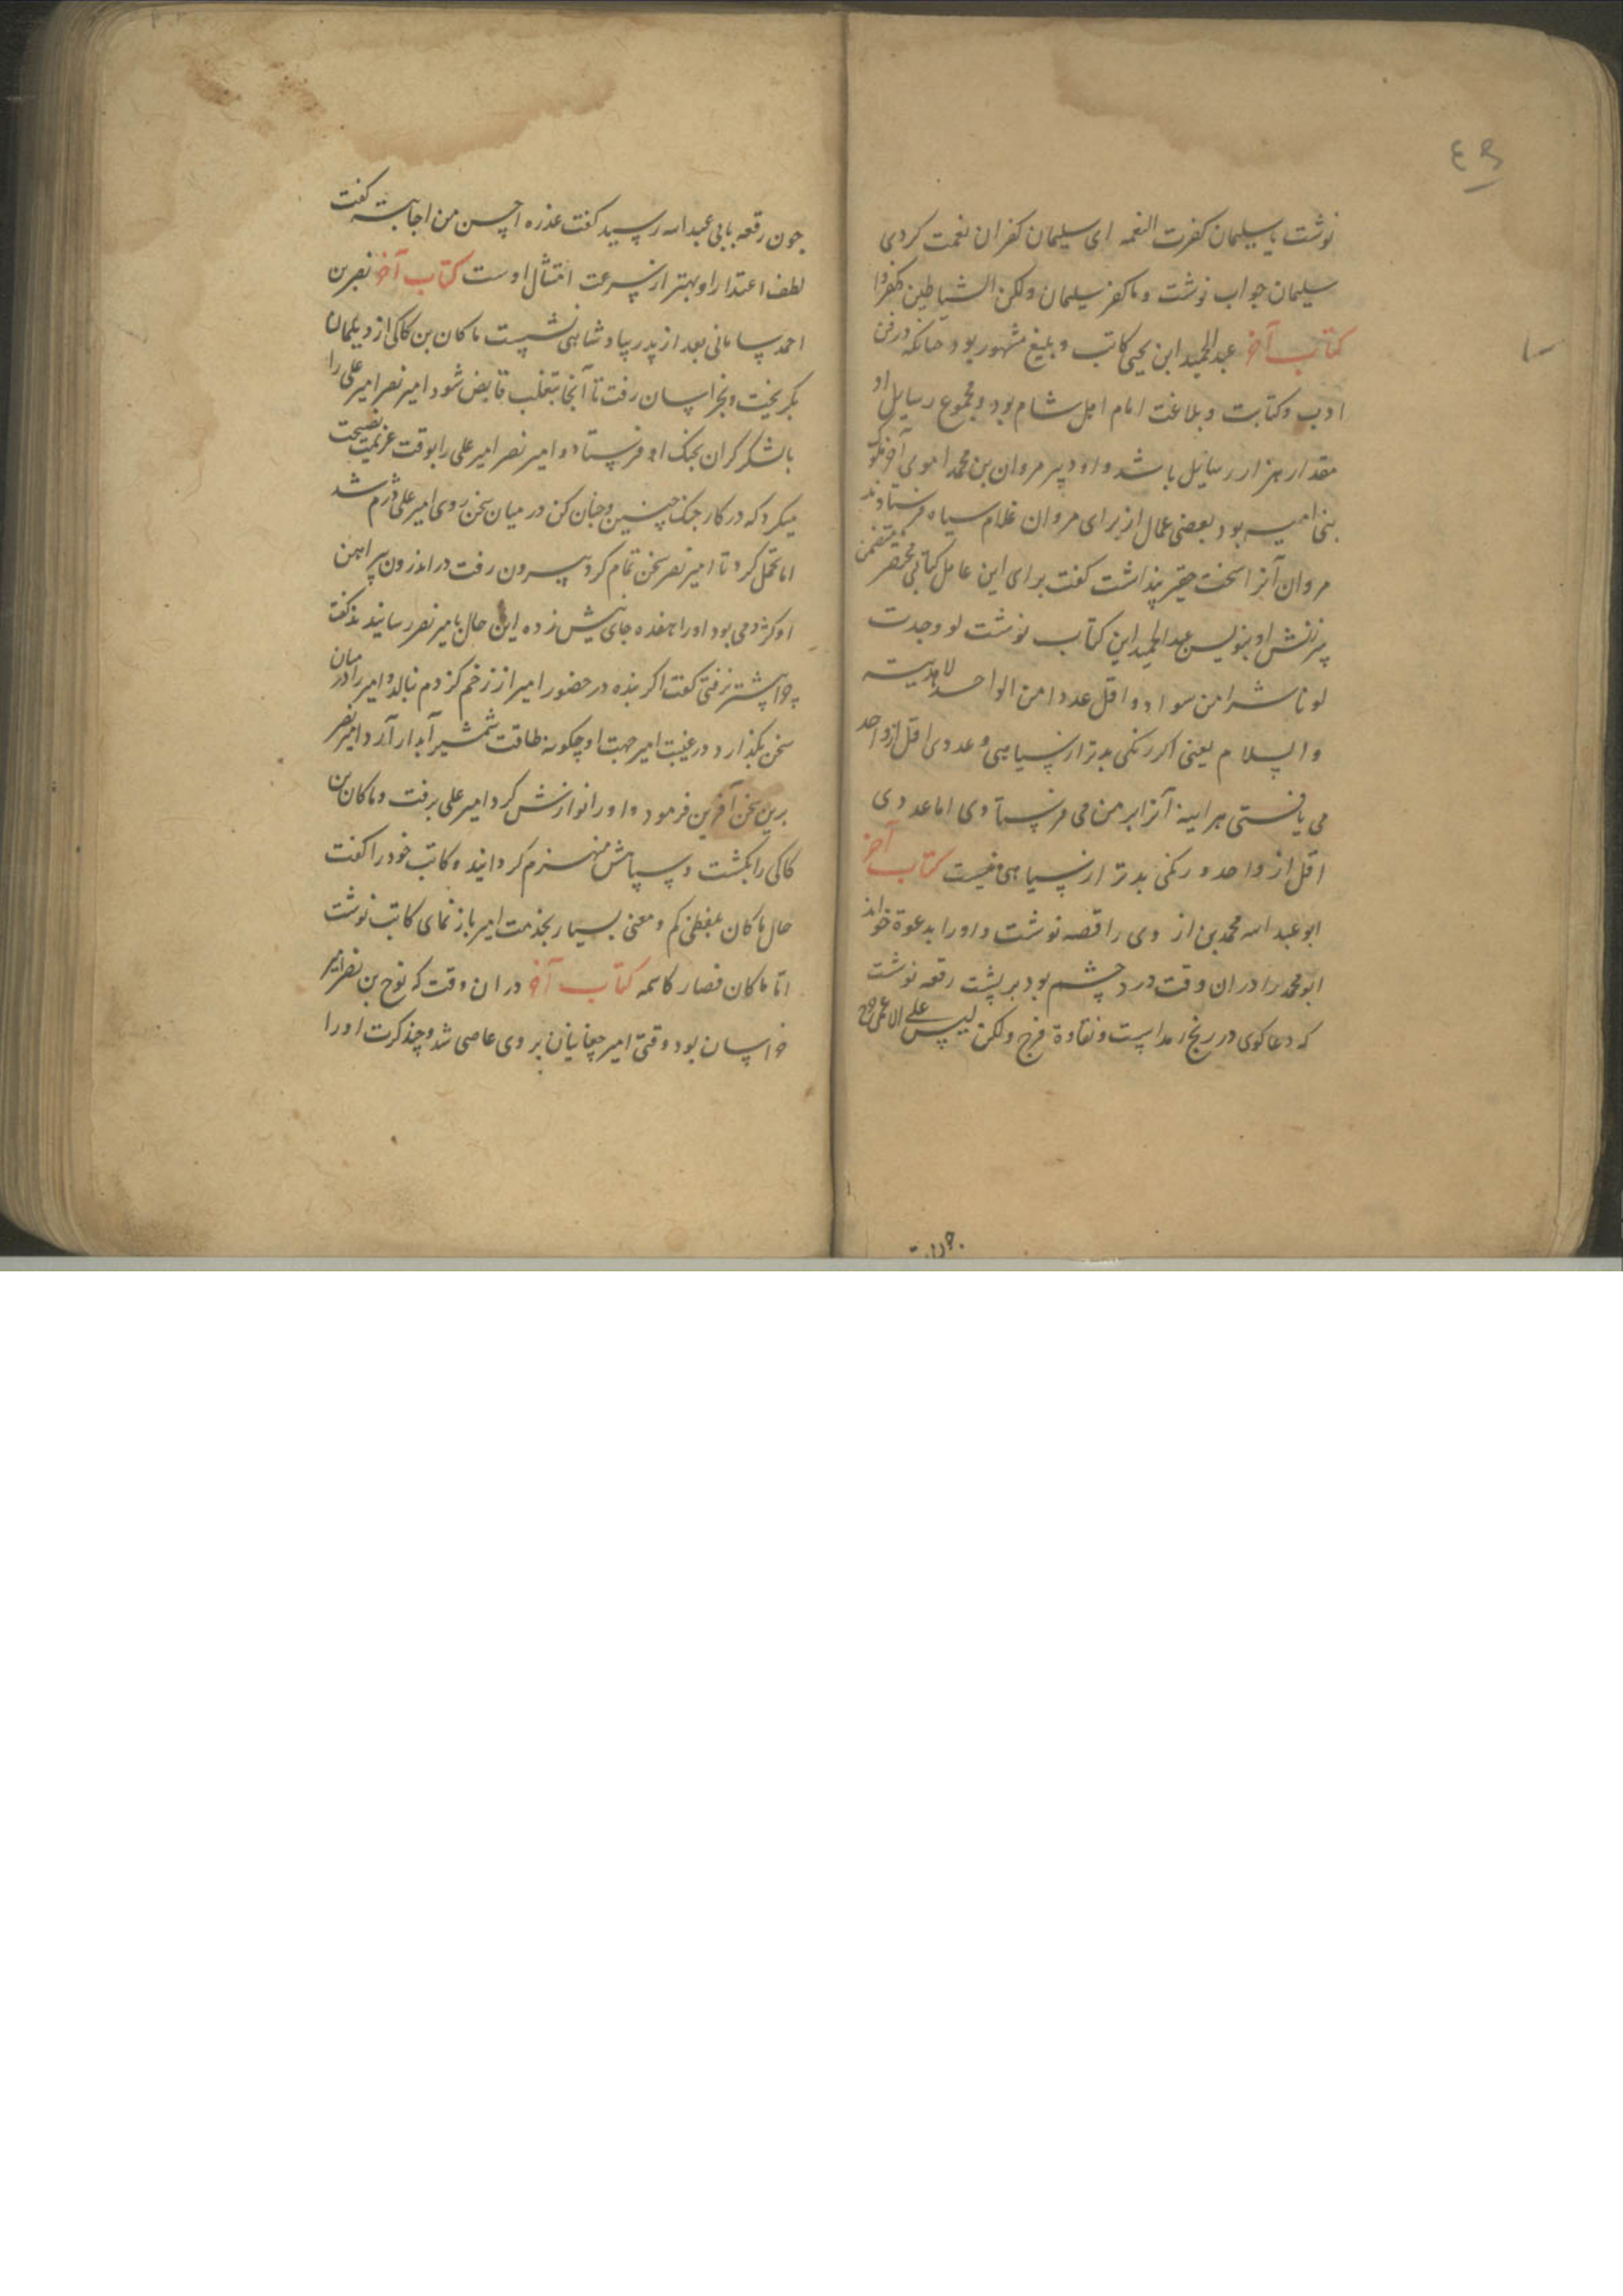 ٤٣
نوشت یا سلیمان کفرت النعمه ای سلیمان کفران نعمت کردی
سلیمان جواب نوشت وما کفر سلیمان ولکن الشیاطین کفروا
کتاب آخر عبدالحمید ابن یحیی کاتب و بلیغ مشهور بود جنانکه در فن
ادب وکتابت و بلاغت امام اهل شام بود و مجموع رسایل او
مقدار هزار رسایل باشد و او دبیر مروان بن محمد اموی آخر ملوک
بنی امیه بود بعضی عمال از برای مروان غلام سیاه فرستادند
مروان آنرا سخت حقیر پنداشت کفت برای این عامل کتابی مختصر متضمن
سرزنش او بنویس عبدالحمید این کتاب نوشت لو وجدت
لونا شرا من سواد و اقل عددا من الواحد لاهدیته
والسلام یعنی اکر رنکی بدتر از سیاهی و عددی اقل از واحد
می یافتی هراینه آنرا بر من می فرستادی اما عددی
اقل از واحد و رنکی بدتر از سیاهی نیست کتاب آخر
ابوعبد الله محمد بن از وی را قصه نوشت و او را بدعوة خواند
ابومحمد را دران وقت درد چشم بود بر پشت رقعه نوشت
که دعاکوی در رنج رمد است و نقاوة فرج ولکن لیس علی الاعمی حرج
جون رقعه بابی عبدالله رسید کفت عذره احسن من اجابته کفت
لطف اعتذار او بهتر از سرعت امتثال اوست کتاب آخر نصر بن
احمد سامانی بعد از پدر بپادشاهی نشست ماکان بن کاکی از دیلمان
بکریخت و بخراسان رفت تا آنجا بتغلب قابض شود امیر نصر امیر علی را
با لشکر کران بجنک او فرستاد و امیر نصر امیر علی را بوقت عزیمت نصیحت
میکرد که در کار جنک چنین و جنان کن در میان سخن روی امیر علی دژم شد
اما تحمل کرد تا امیر نصر سخن تمام کرد بیرون رفت در اندرون پیراهن
او کژدمی بود او را هفده جای نیش زده این حال بامیر نصر رسانیدند کفت
چرا پیشتر نرفتی کفت اکر بنده در حضور امیر از زخم کژدم بنالد و امیر را در میان
سخن بکذارد در غیبت امیر جهت او چکونه طاقت شمشیر آبدار آرد امیر نصر
برین سخن آفرین فرمود و او را نوازش کرد امیر علی برفت و ماکان بن
کاکی را بکشت و سپاهش منهزم کردانید و کاتب خود را کفت
حال ماکان بلفظی کم و معنی بسیار بخدمت امیر باز نمای کاتب نوشت
اما ماکان فصار کاسمه کتاب آخر دران وقت که نوح بن نصر امیر
خراسان بود وقتی امیر چغانیان بر وی عاصی شد و چند کرت او را